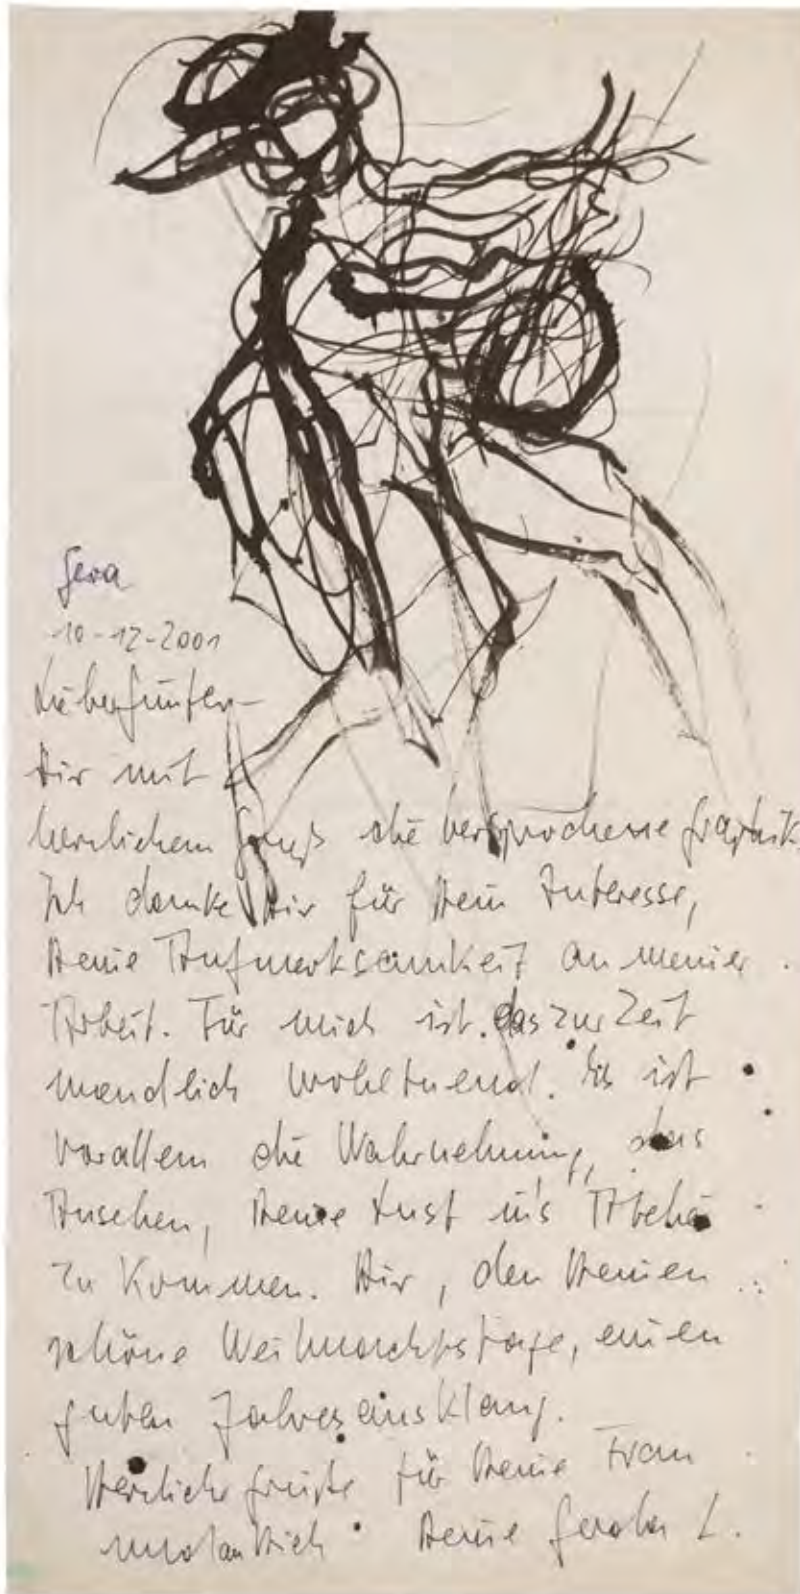 Gera
10-12-2001
Lieber Günter –
Dir mit
herzlichem Gruß die versprochene Graphik.
Ich danke Dir für Dein Interesse,
Deine Aufmerksamkeit an meiner
Arbeit. Für mich ist das zur Zeit
unendlich wohltuend. Es ist
vorallem die Wahrnehmung, das
Ansehen, Deine Lust ins Atelier
zu kommen. Dir, den Deinen
schöne Weihnachtstage, einen
guten Jahresausklang.
Herzliche Grüße für Deine Frau
und an Dich Deine Gerda L.